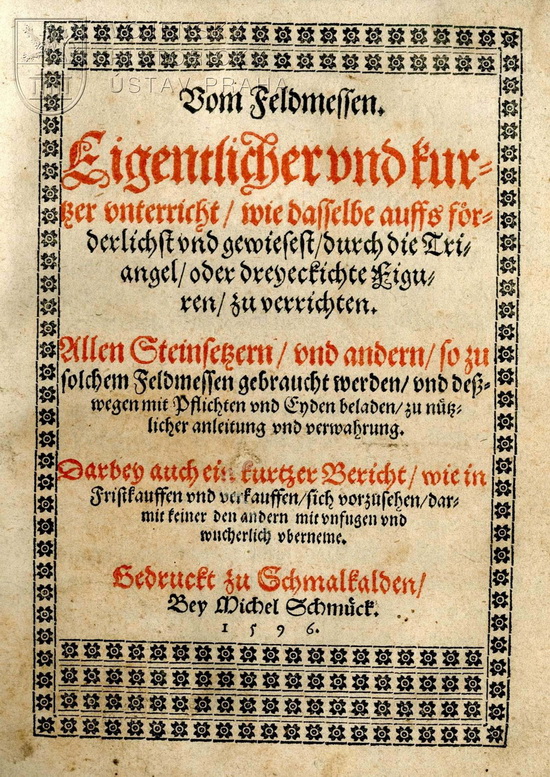 ÚSTAV PRAHA
Vom Feldmessen.
Eigentlicher vnd kur-
tzer vnterricht / wie dasselbe auffsför-
derlichst vnd gewissest / durch die Tri-
angel / oder dreyeckichte Figu-
ren / zu verrichten.
Allen Steinsetzern / vnd andern / so zu
solchem Feldmessen gebraucht werden / vnd deß-
wegen mit Pflichten vnd Eyden beladen / zu nütz-
licher anleitung vnd verwahrung.
Darbey auch ein kurtzer Bericht / wie in
Fristkauffen vnd verkauffen / sich vorzusehen / dar-
mit keiner den andern mit vnfugen vnd
wucherlich vberneme.
Gedruckt zu Schmalkalden /
Bey Michel Schmück.
1 5 9 6.